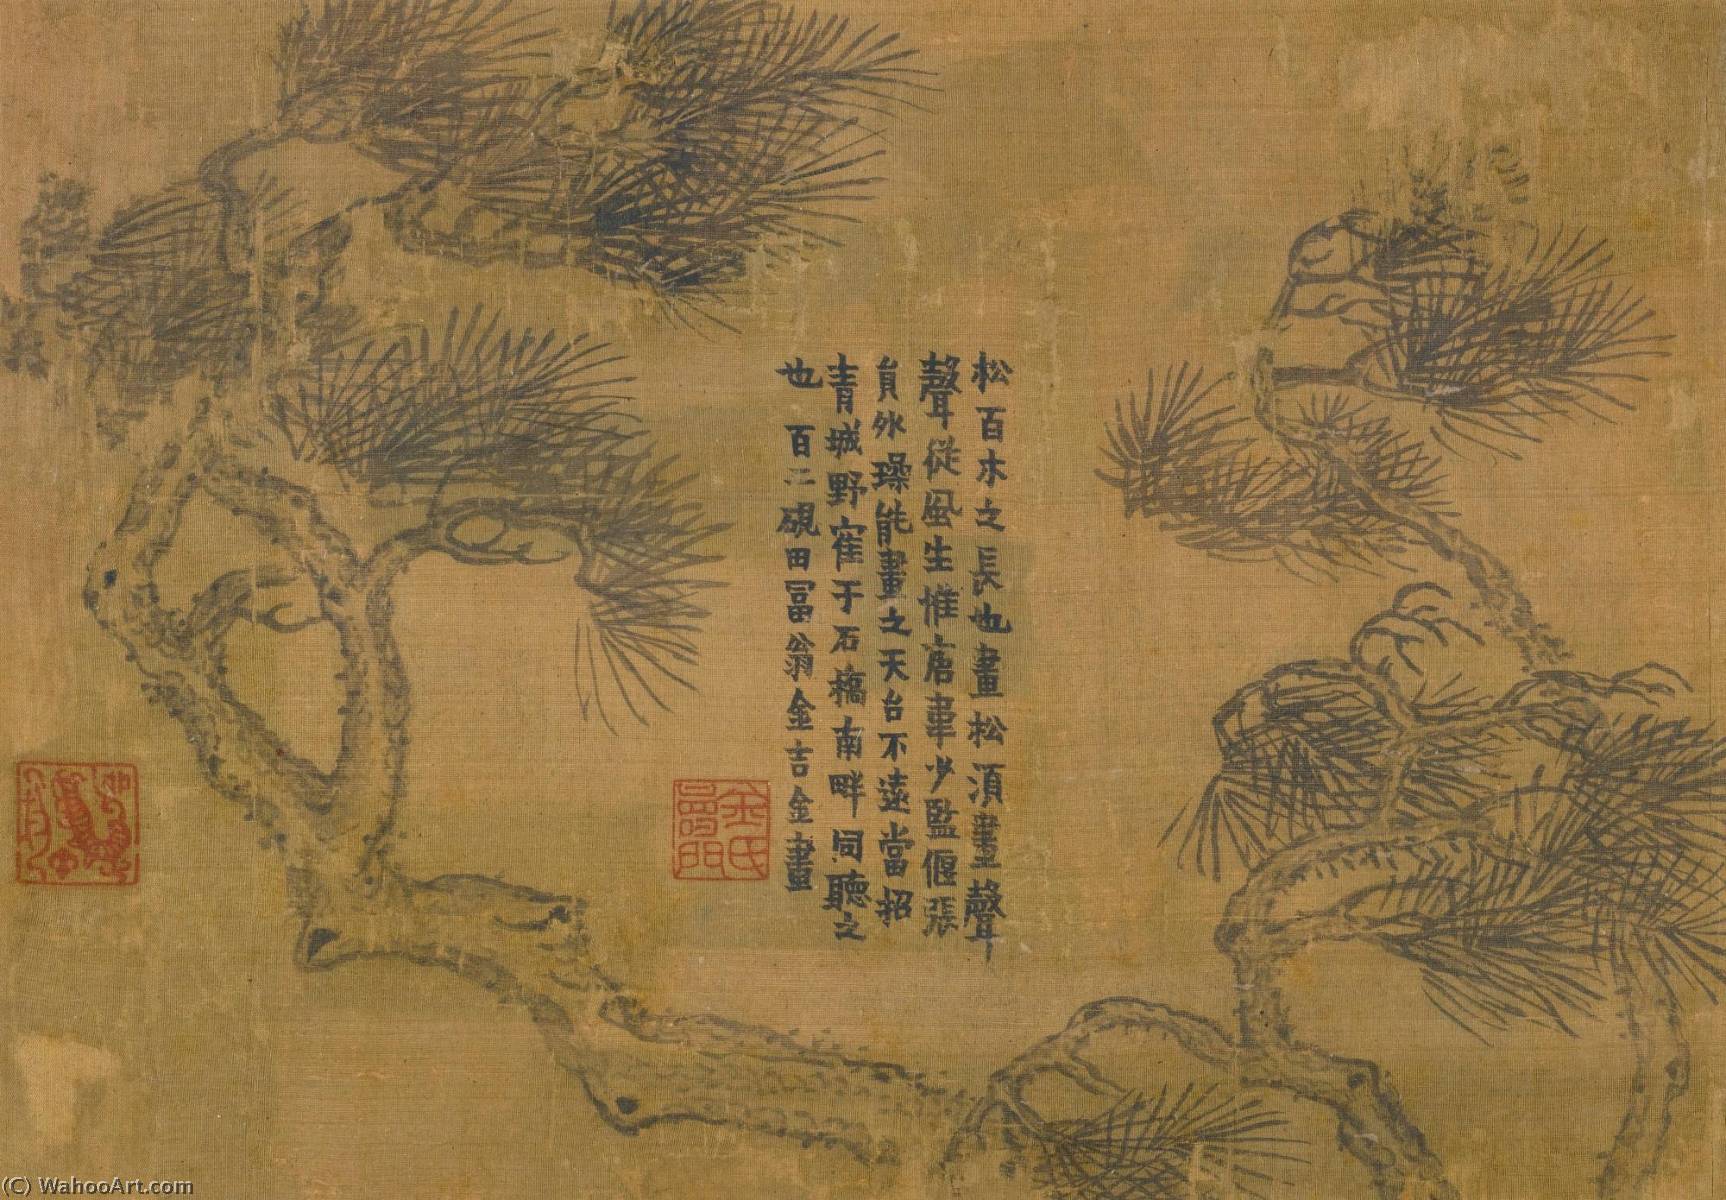 松百木之長也畫松湏畫聲
聲從風生惟唐韋少監偃張
員外璪能畫之天台不遠當招
青城野寉于石橋南畔同聽之
也 百二硯田冨翁金吉金畫
金氏壽門
(C) WahooArt.com